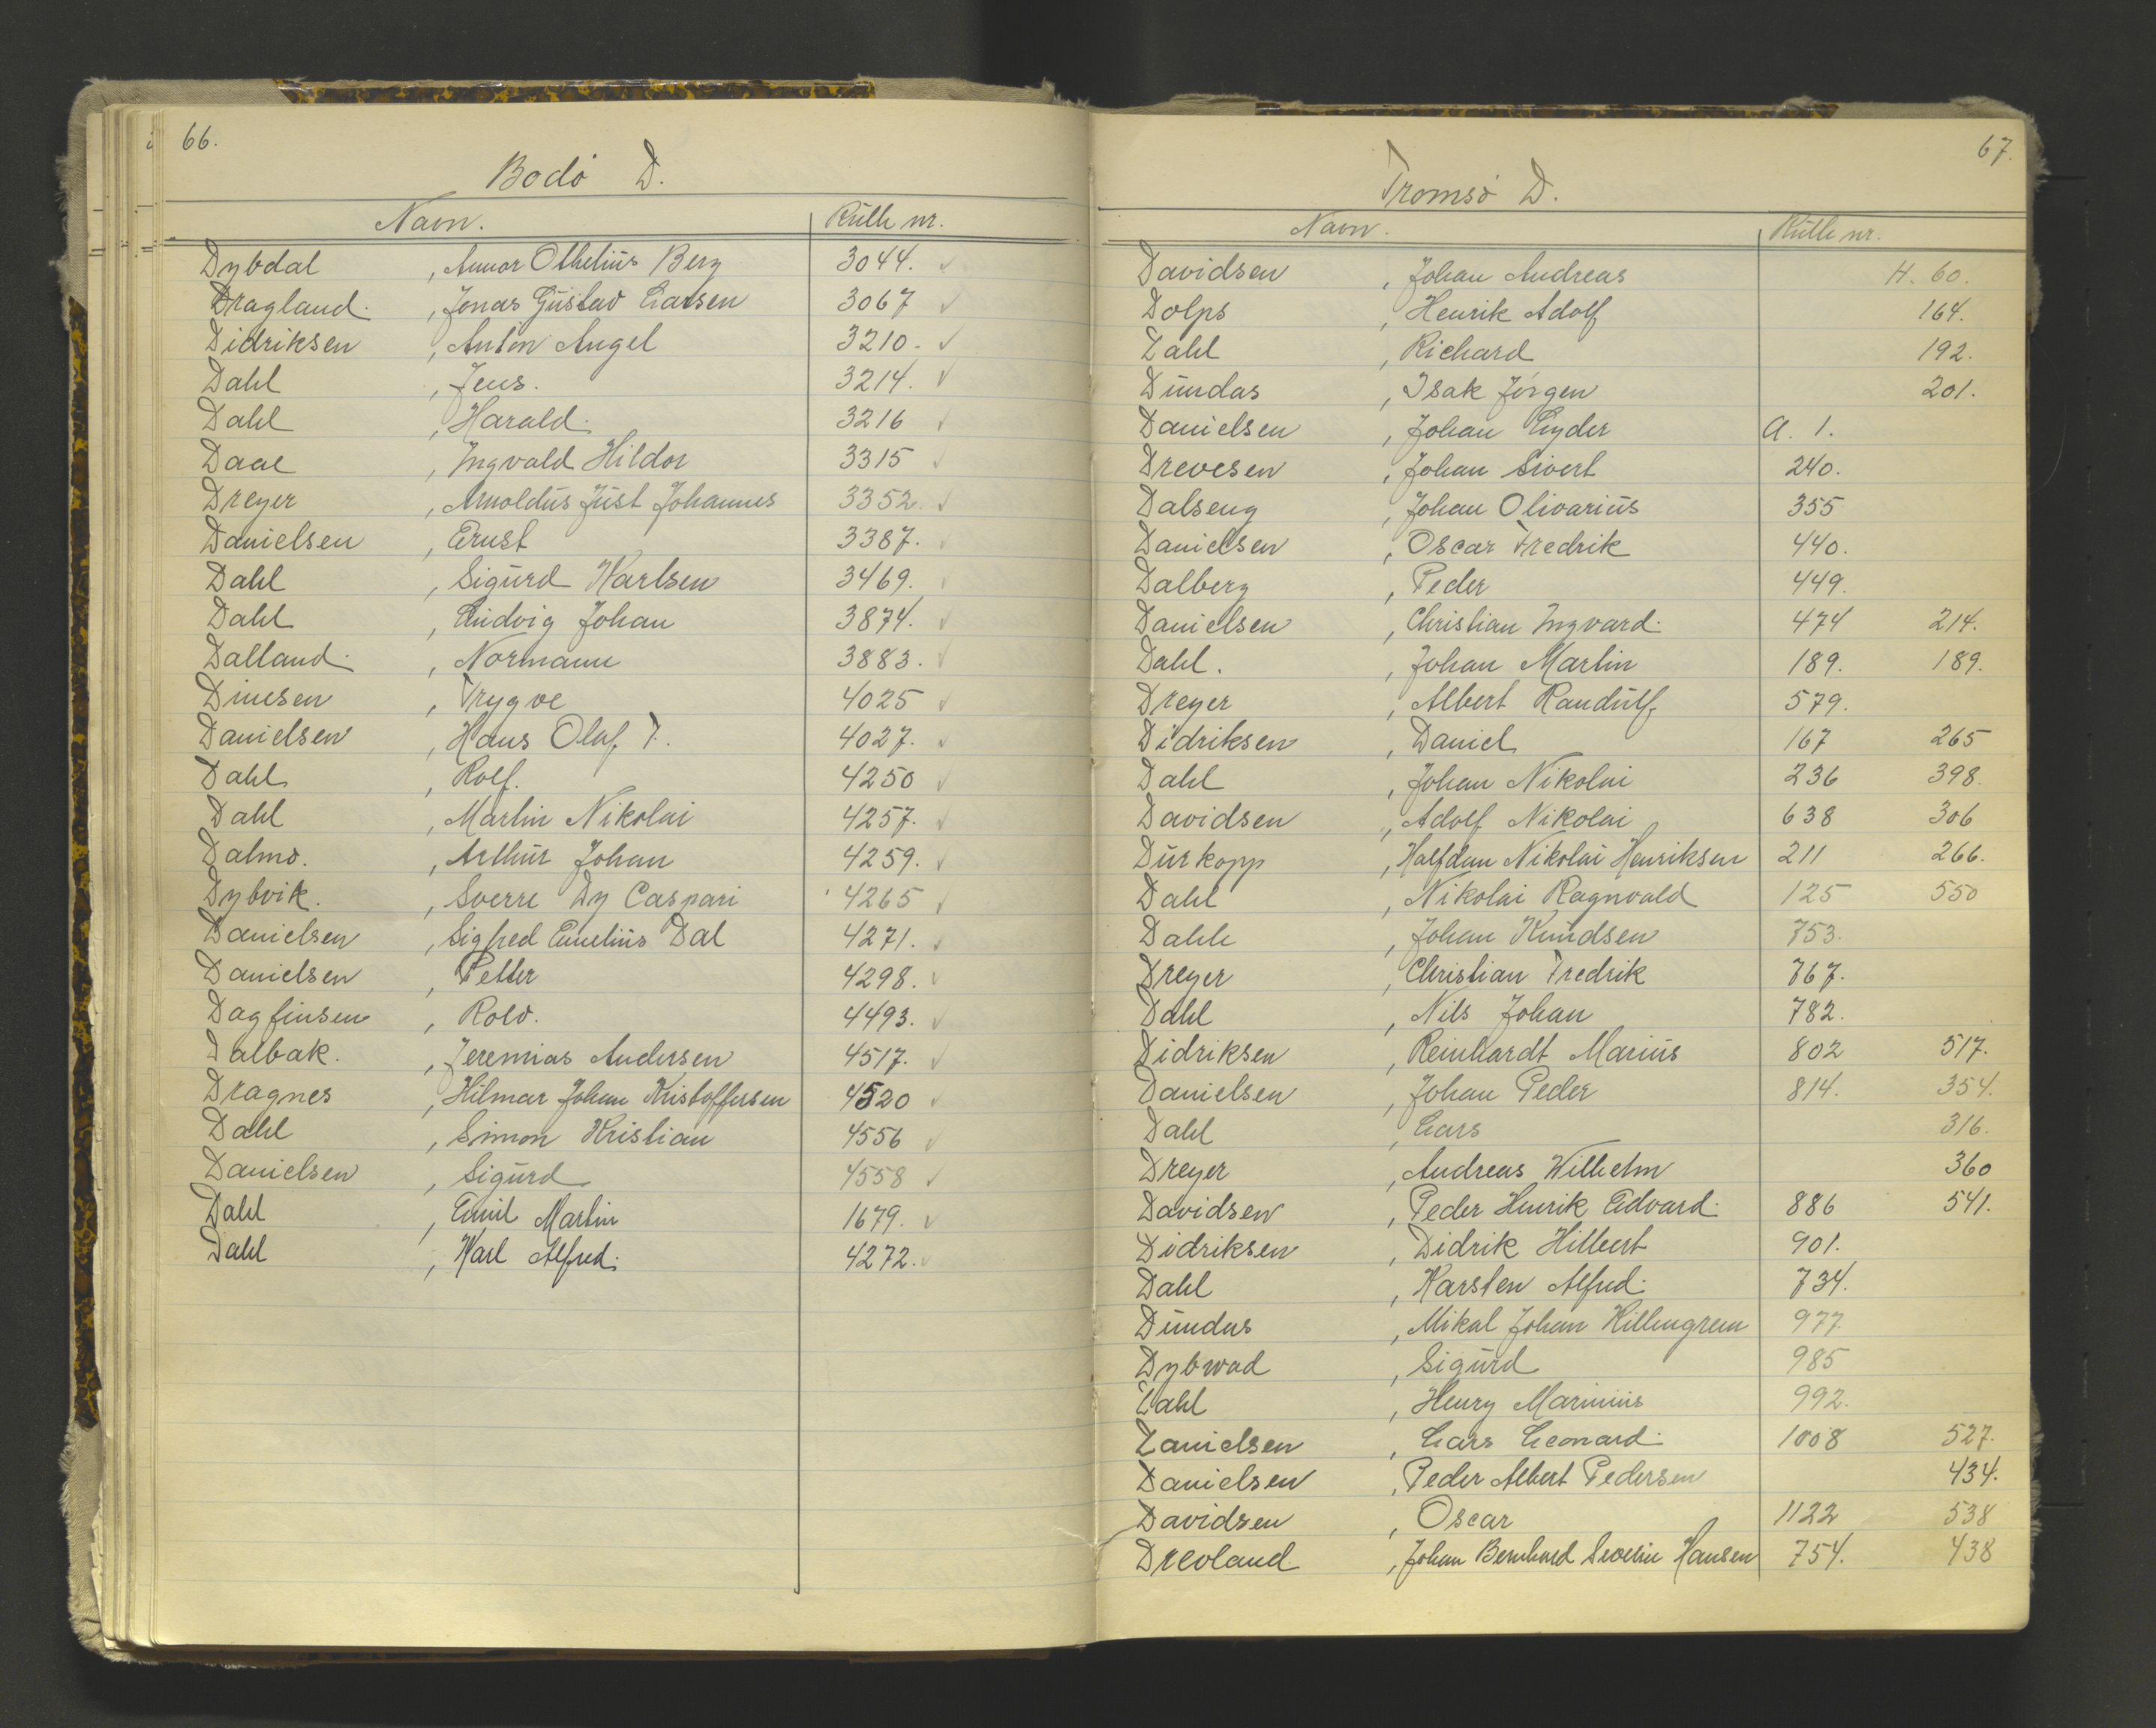 66.
Bodö D.
Navn. Rulle nr.
Dybdal , Annor Othelius Berg 3044. ✓
Dragland. , Jonas Gustav Larsen 3067 ✓
Didriksen , Anton Angel 3210. ✓
Dahl , Jens. 3214. ✓
Dahl , Harald. 3216 ✓
Daae , Ingvald Hildor 3315 ✓
Dreyer , Arnoldus Just Johannes 3352. ✓
Danielsen , Ernst 3387. ✓
Dahl , Sigurd Karlsen 3469. ✓
Dahl , Ludvig Johan 3874. ✓
Dalland. , Normann 3883. ✓
Dinesen , Trygve 4025 ✓
Danielsen , Hans Olaf T. 4027. ✓
Dahl , Rolf. 4250 ✓
Dahl , Martin Nikolai 4257. ✓
Dalmo. , Arthur Johan 4259. ✓
Dybvik. , Sverre Dy Caspari 4265 ✓
Danielsen , Sigfred Emelius Dal 4271. ✓
Danielsen , Petter 4298. ✓
Dagfinsen , Rolv. 4493. ✓
Dalbak. , Jeremias Andersen 4517. ✓
Dragnes , Hilmar Johan Kristoffersen 4520 ✓
Dahl , Simon Kristian 4556 ✓
Danielsen , Sigurd 4558 ✓
Dahl , Emil Martin 1679. ✓
Dahl , Karl Alfred. 4272. ✓
67.
Tromsö D.
Navn. Rulle nr.
Davidsen , Johan Andreas H. 60.
Dolps , Henrik Adolf 164.
Dahl , Richard 192.
Dundas , Isak Jörgen 201.
Danielsen , Johan Lyder A. 1.
Drevesen , Johan Sivert 240.
Dalseng , Johan Olivarius 355
Danielsen , Oscar Fredrik 440.
Dalberg , Peder 449.
Danielsen , Christian Ingvard. 474 214.
Dahl. , Johan Martin 189. 189.
Dreyer , Albert Randulf 579.
Didriksen , Daniel 167 265
Dahl , Johan Nikolai 236 398.
Davidsen , Adolf Nikolai 638 306
Durkopp , Halfdan Nikolai Henriksen 211 266.
Dahl , Nikolai Ragnvald 125 550
Dahle , Johan Knudsen 753.
Dreyer , Christian Fredrik 767.
Dahl , Nils Johan 782.
Didriksen , Reinhardt Marius 802 517.
Danielsen , Johan Peder 814. 354.
Dahl , Lars 316.
Dreyer , Andreas Wilhelm 360
Davidsen , Peder Henrik Edvard. 886 541.
Didriksen , Didrik Hilbert 901.
Dahl , Karsten Alfred. 734.
Dundas , Mikal Johan Killengreen 977.
Dybwad , Sigurd 985
Dahl , Henry Marinius 992.
Danielsen , Lars Leonard. 1008 527.
Danielsen , Peder Albert Pedersen 434.
Davidsen , Oscar 1122 538
Drevland. , Johan Bernhard Severin Hansen 754. 438